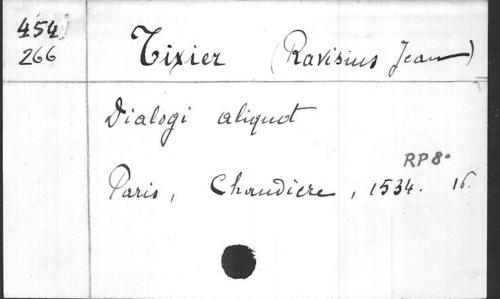 454
266
Tixier (Ravisius Jean)
Dialogi aliquot
RP 8°
Paris, Chaudiere, 1534. 16.